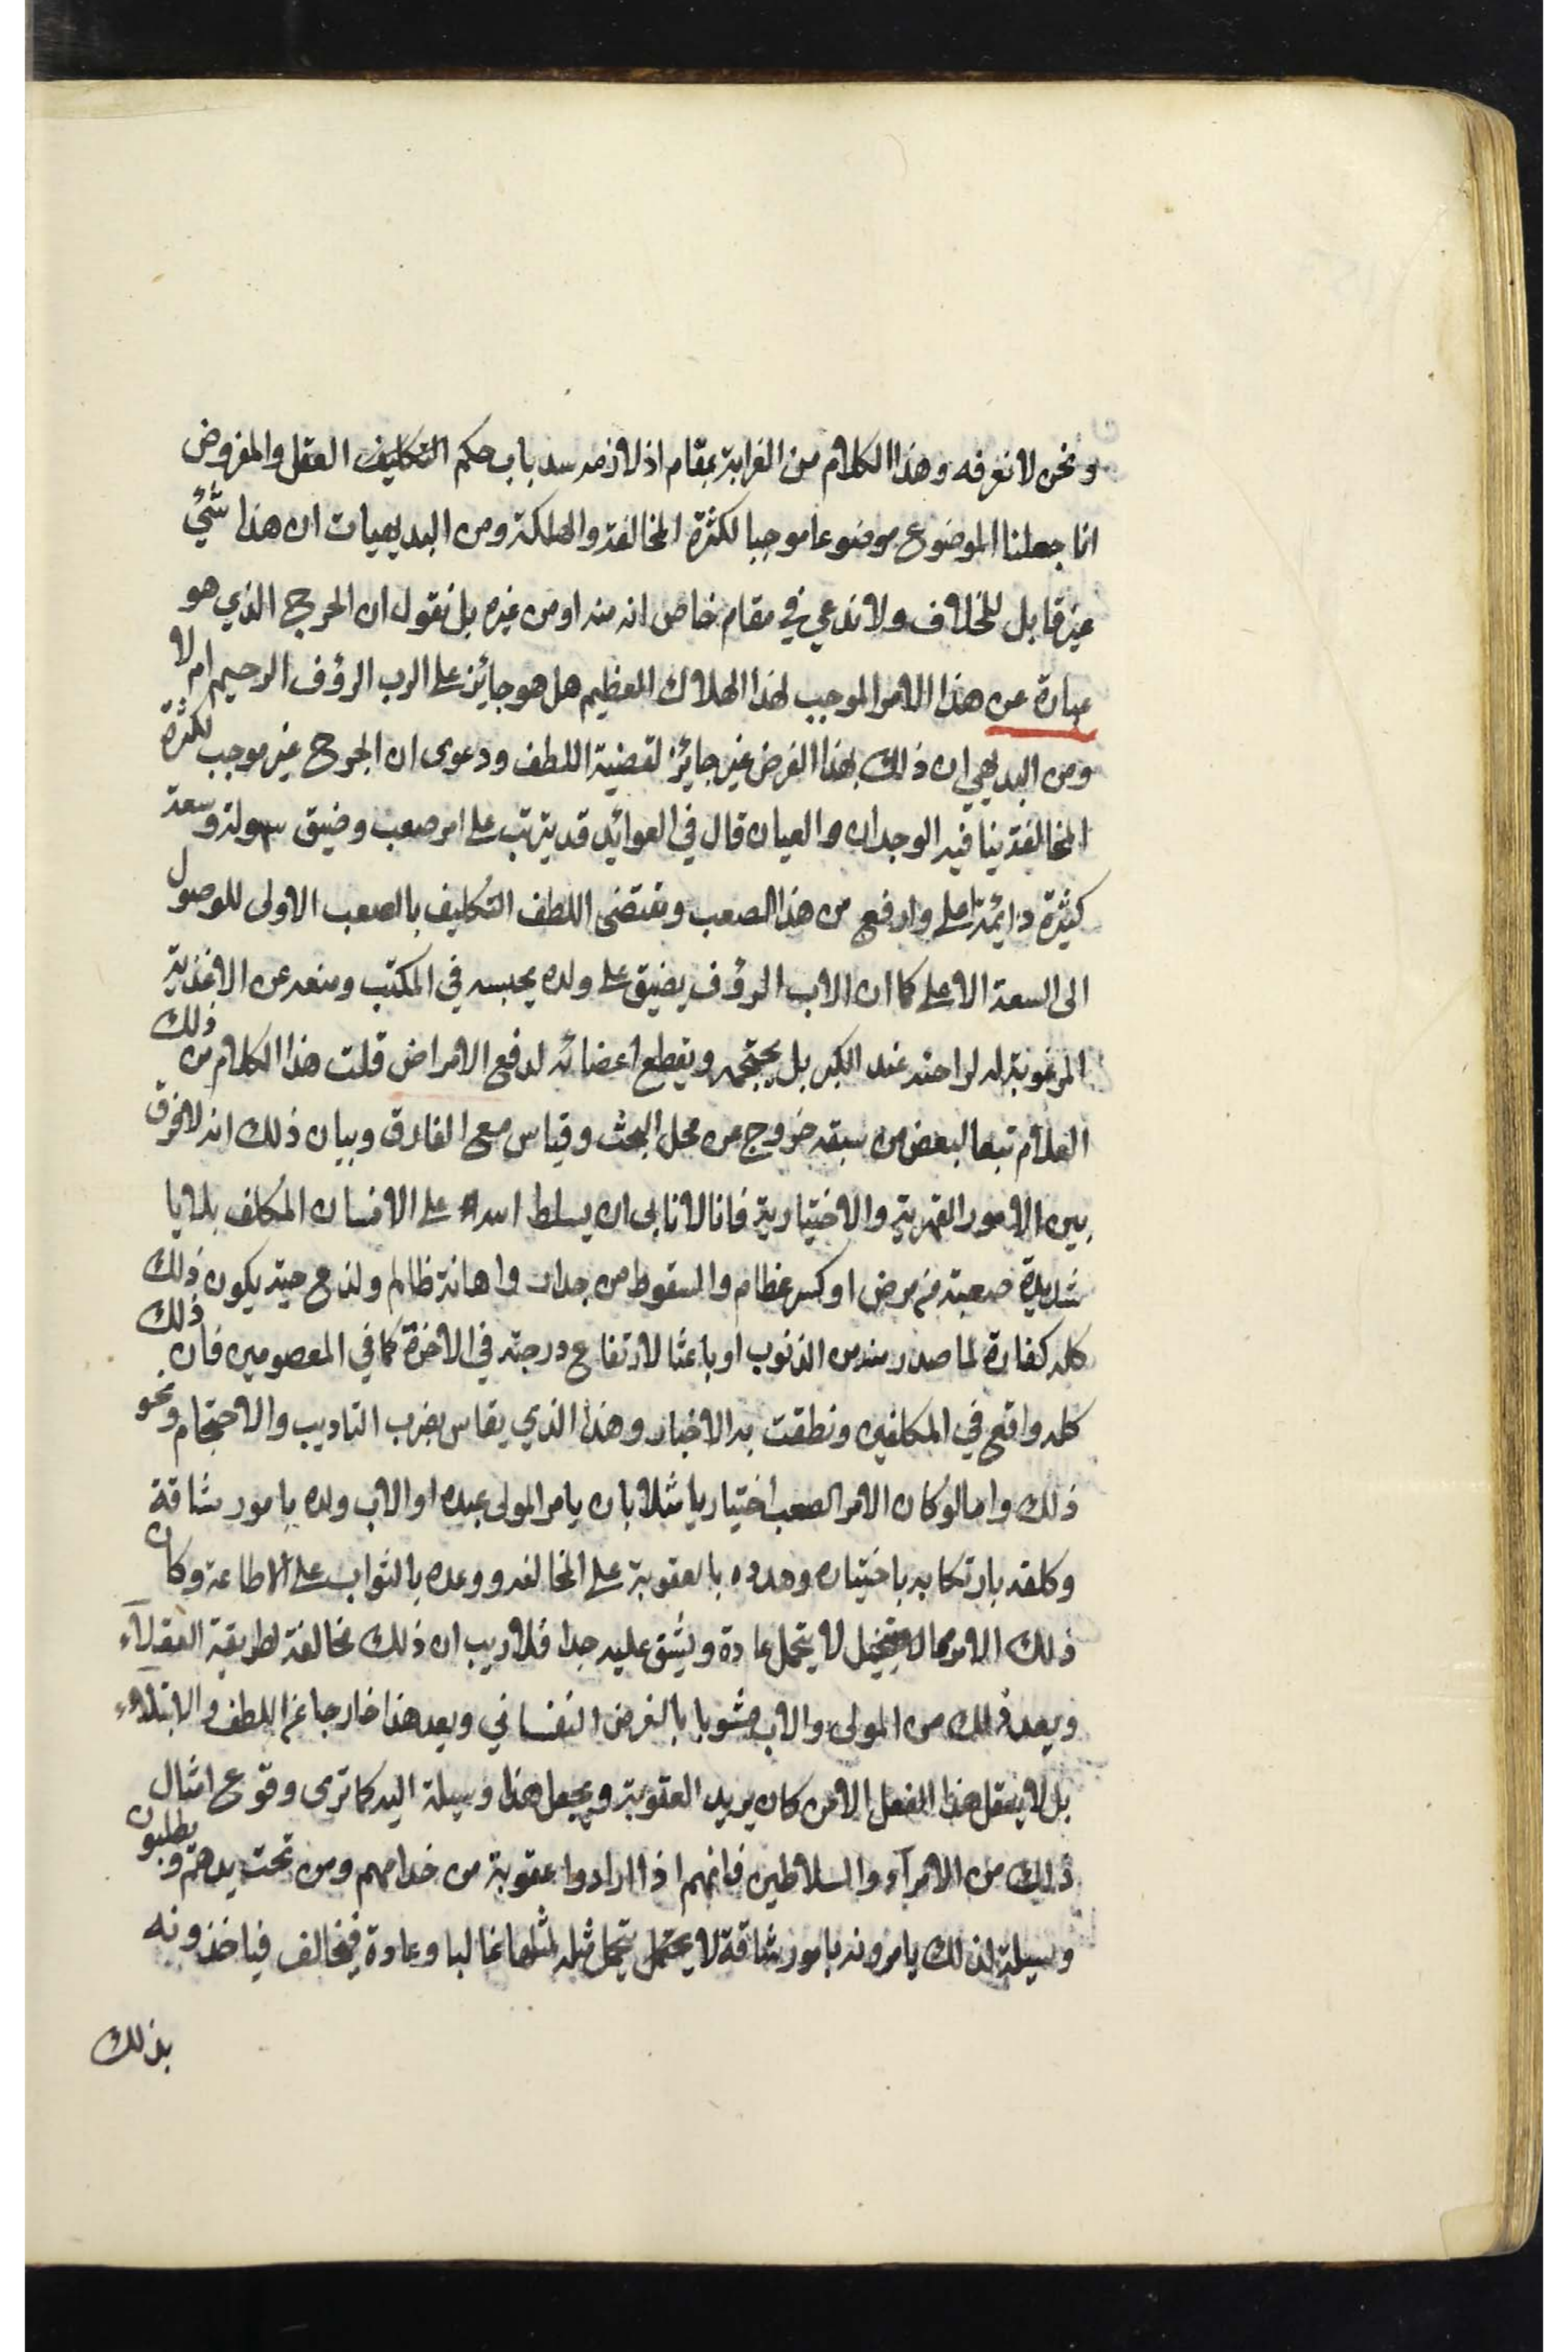 ونحن لا نعرفه وهذا الكلام من الغرابة بمقام اذ لازمه سد باب حكم التكليف العقل والمفروض
انا جعلنا الموضوع موضوعا موجبا لكثرة المخالفة والهلكة ومن البديهيات ان هذا شئ
غير قابل للخلاف ولا ندعي في مقام خاص انه منه او من غيره بل نقول ان الحرج الذي هو
عبارة عن هذا الامر الموجب لهذا الهلاك العظيم هل هو جائز على الرب الرؤف الرحيم ام لا
ومن البديهي ان ذلك بهذا الفرض غير جائز لقضية اللطف ودعوى ان الحرج غير موجب لكثرة
المخالفة ينافيه الوجدان والعيان قال في العوائد قد يترتب على امر صعب وضيق سهولة وسعة
كثيرة دائمة اعلى وارفع من هذا الصعب ومقتضى اللطف التكليف بالصعب الاولى للوصول
الى السعة الاعلى كما ان الاب الرؤف يضيق على ولده يحبسه في المكتب ومنعه عن الاغذية
المرغوبة له لراحته عند الكبر بل يحتجمه ويقطع اعضائه لدفع الامراض قلت هذا الكلام من ذلك
العلام تبعا لبعض من سبقه خروج عن محل البحث وقياس مع الفارق وبيان ذلك انه لا فرق
بين الامور القهرية والاختيارية فانا لا نابى ان يسلط الله على الانسان المكلف بلايا
شديدة صعبة من مرض او كسر عظام والسقوط من جدار واهانة ظالم ولذع حية يكون ذلك
كله كفارة لما صدر منه من الذنوب او باعثا لارتفاع درجته في الاخرة كما في المعصومين فان ذلك
كله واقع في المكلفين ونطقت به الاخبار وهذا الذي يقاس بضرب التاديب والاحتجام ونحو
ذلك واما لو كان الامر الصعب اختياريا مثلا بان يامر المولى عبده او الاب ولده بامور شاقة
وكلفه بارتكابه باختياره وهدده بالعقوبة على المخالفه ووعده بالثواب على الاطاعة وكان
ذلك الامر مما لا يتحمل عادة ويشق عليه جدا فلا ريب ان ذلك مخالفة لطريقة العقلاء
ويعد ذلك من المولى والاب مشوبا بالغرض النفساني ويعد هذا خارجا عن اللطف والابتلاء
بل لا يعقل هذا الفعل الا من كان يريد العقوبة ويجعل هذا وسيلة اليه كما ترى وقوع امثال
ذلك من الامرآء والسلاطين فانهم اذا ارادوا عقوبة من خدامهم ومن تحت يدهم ويطلبون
وسيلة لذلك يامرونه بامور شاقة لا يحتمل تحمل مثله لمثلها غالبا وعادة فيخالف فياخذونه
بذلك